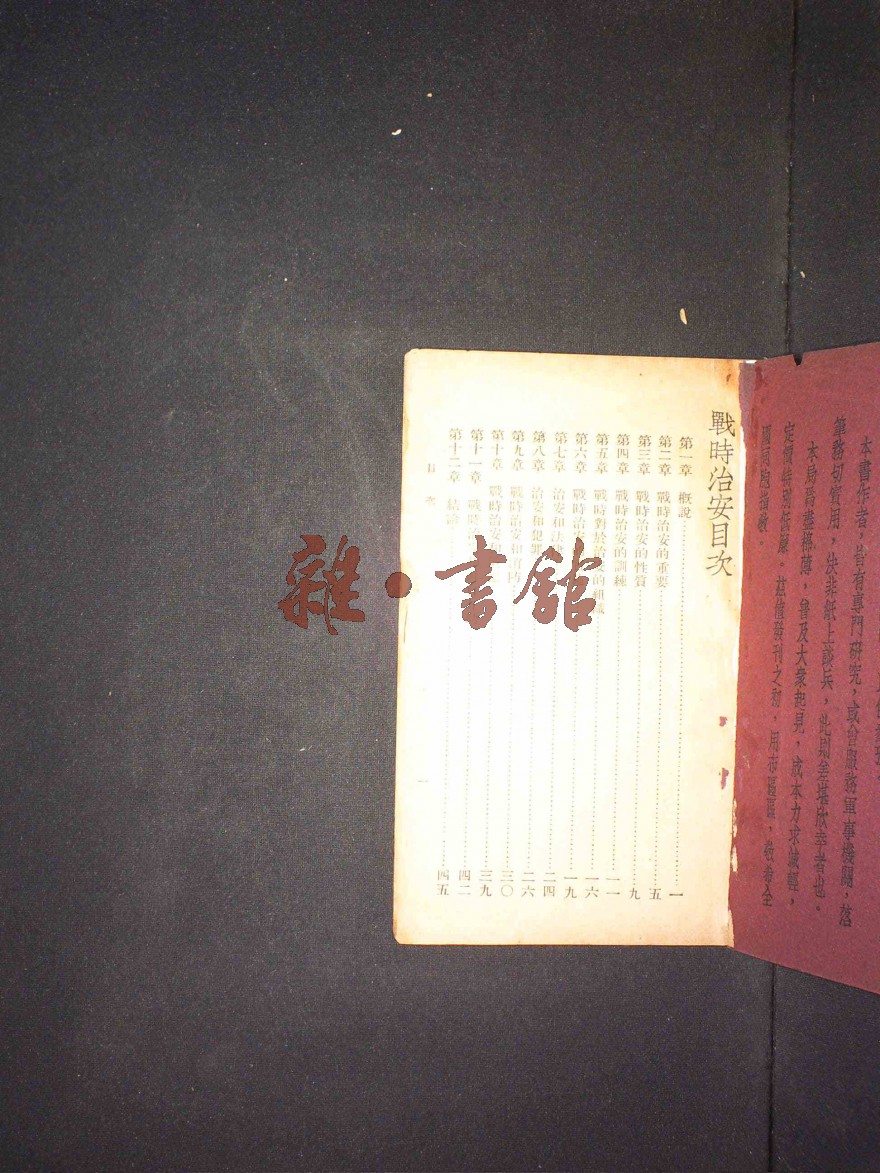 本書作者，皆有專門研究，或曾服務軍事機關，落
筆務切實用，決非紙上談兵，此則差堪欣幸者也。
本局爲盡棉薄，普及大衆起見，成本力求減輕，
定價特別低廉。茲值發刊之初，用布區區，敬希全
國同胞指教。
戰時治安目次
第一章 概說……一
第二章 戰時治安的重要……五
第三章 戰時治安的性質……九
第四章 戰時治安的訓練……一一
第五章 戰時對於治安的組織……一六
第六章 戰時治……一九
第七章 治安和法……二四
第八章 治安和犯罪……二六
第九章 戰時治安和……三〇
第十章 戰時治安……三九
第十一章 戰時……四二
第十二章 結論……四五
目 次
一
雜·書館